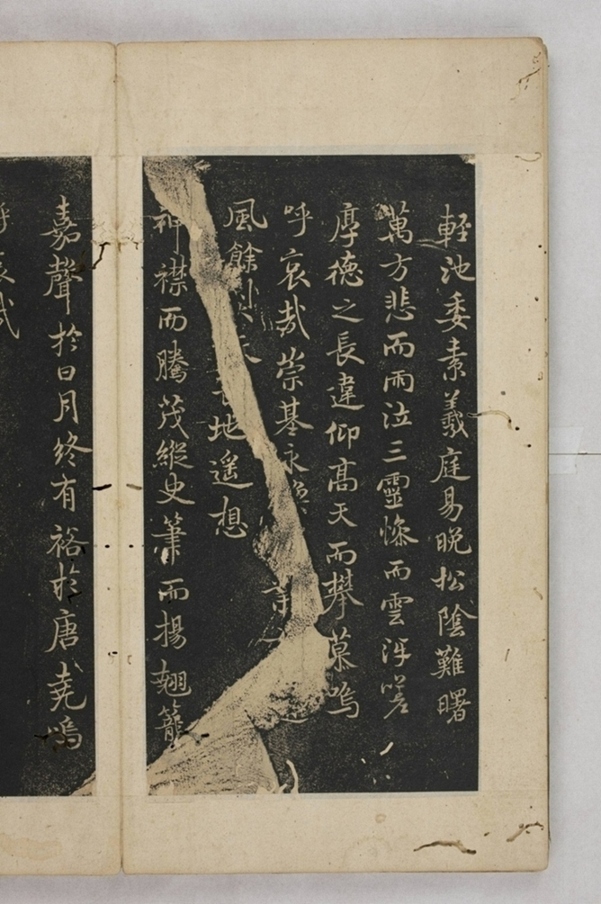 輕池委素羲庭易晚松陰難曙
萬方悲而雨泣三靈慘而雲冴嗟
厚德之長違仰高天而攀慕嗚
呼哀哉崇基永
風餘天長地遥想
神襟而騰茂縱史筆而揚翹籠
嘉聲於日月終有裕於唐堯嗚
呼哀哉